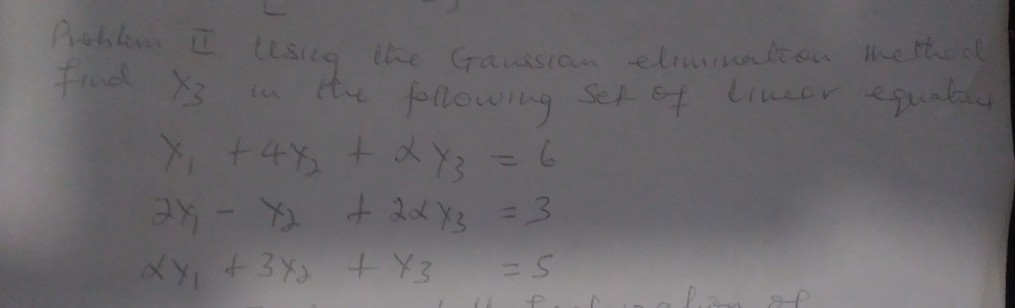 Problem II Using the Gaussian elimination method
find x₃ in the following set of linear equations
x₁ + 4x₂ + αx₃ = 6
2x₁ - x₂ + 2αx₃ = 3
αx₁ + 3x₂ + x₃ = 5